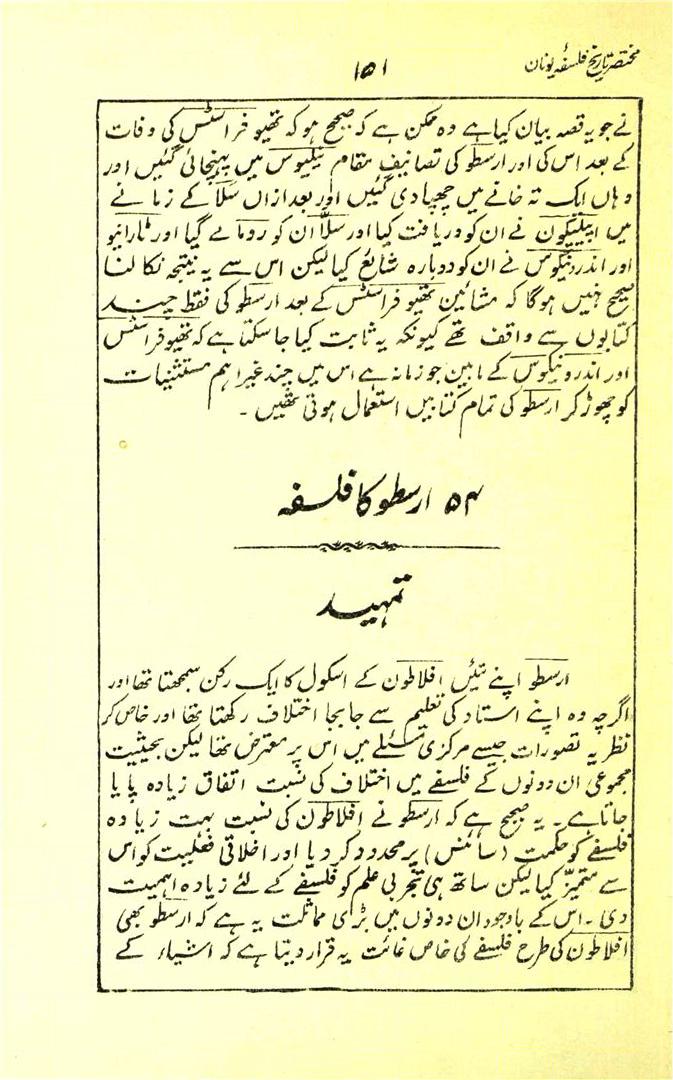 مختصر تاریخ فلسفۂ یونان
۱۵۱
نے جو یہ قصہ بیان کیا ہے وہ ممکن ہے کہ صحیح ہو کہ تھیو فراسٹس کی وفات
کے بعد اس کی اور ارسطو کی تصانیف مقام پہنچائی گئیں اور
وہاں ایک تہ خانے میں چھپا دی گئیں اور بعد ازاں سلّا کے زمانے
میں اپیلیکون نے ان کو دریافت کیا اور سلّا ان کو روما لے گیا اور
اور اندرونیکوس نے ان کو دوبارہ شایع کیا لیکن اس سے یہ نتیجہ نکالنا
صحیح نہیں ہو گا کہ مشائین تھیو فراسٹس کے بعد ارسطو کی فقط چند
کتابوں سے واقف تھے کیونکہ یہ ثابت کیا جا سکتا ہے کہ تھیو فراسٹس
اور اندرونیکوس کے مابین جو زمانہ ہے اس میں چند غیر اہم مستثنیات
کو چھوڑ کر ارسطو کی تمام کتابیں استعمال ہوتی تھیں۔
۵۴ ارسطو کا فلسفہ
تمہید
ارسطو اپنے تئیں افلاطون کے اسکول کا ایک رکن سمجھتا تھا اور
اگرچہ وہ اپنے استاد کی تعلیم سے جا بجا اختلاف رکھتا تھا اور خاص کر
نظریہ تصورات جیسے مرکزی مسئلے میں اس پر معترض تھا لیکن بحیثیت
مجموعی ان دونوں کے فلسفے میں اختلاف کی نسبت اتفاق زیادہ پایا
جاتا ہے۔ یہ صحیح ہے کہ ارسطو نے افلاطون کی نسبت بہت زیادہ
فلسفے کو حکمت (سائنس) پر محدود کر دیا اور اخلاقی فعلیت کو اس
سے متمیّز کیا لیکن ساتھ ہی تجربی علم کو فلسفے کے لئے زیادہ اہمیت
دی۔ اس کے باوجود ان دونوں میں بڑی مماثلت یہ ہے کہ ارسطو بھی
افلاطون کی طرح فلسفے کی خاص غائت یہ قرار دیتا ہے کہ اشیاء کے